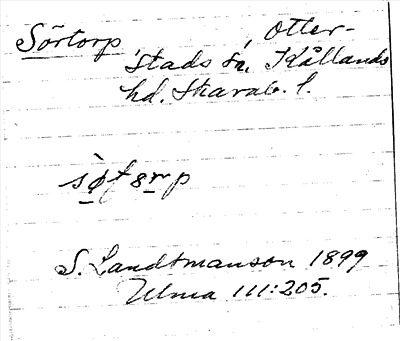 Sörtorp, Otter-
stads sn, Kållands
hd. Skarab. l.
S. Landtmanson 1899
Ulma 111:205.